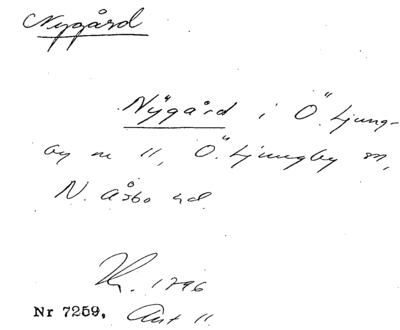 Nygård
Nÿgård i Ö. Ljung-
by nr 11, Ö. Ljungby sn,
N. Åsbo hd
Kr. 1796
Nr 7259, Akt 11